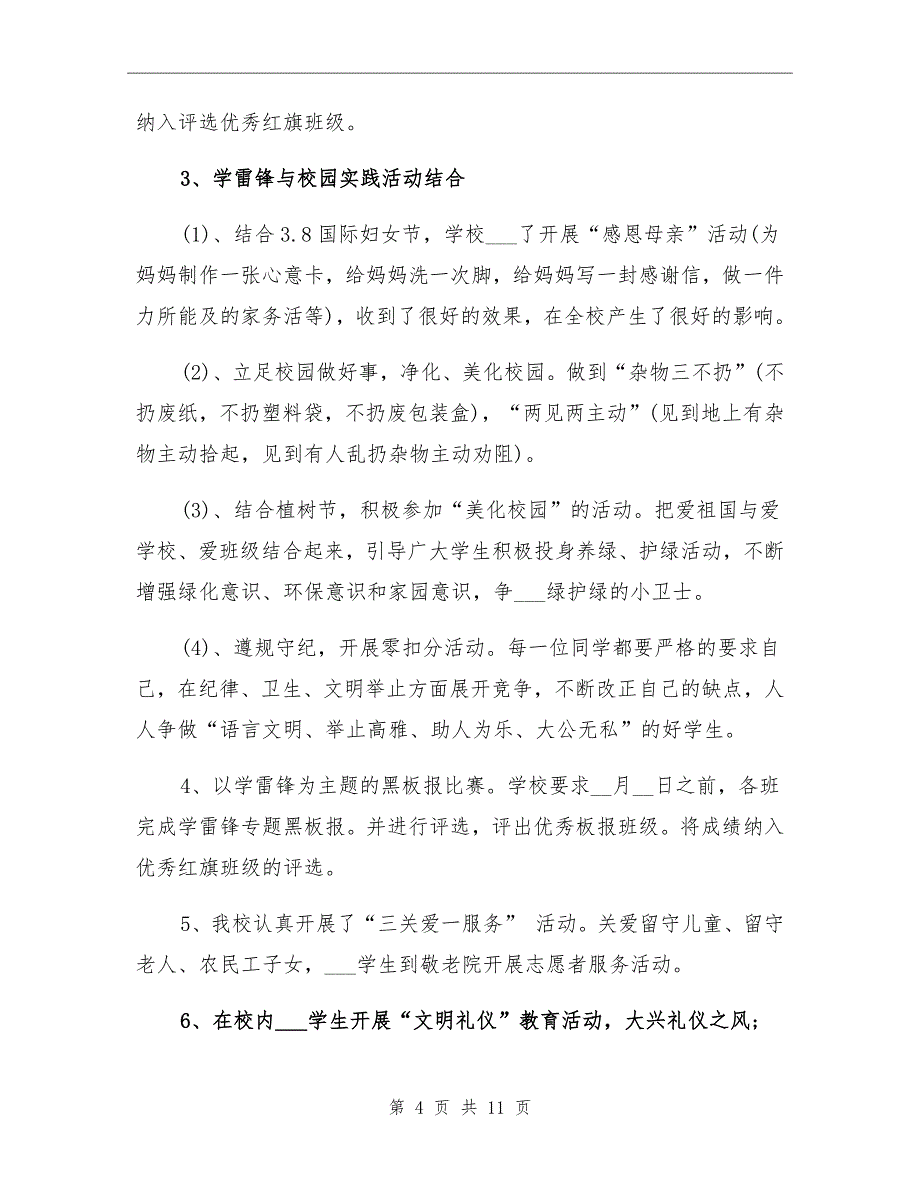 纳入评选优秀红旗班级。
3、学雷锋与校园实践活动结合
(1)、结合 3.8 国际妇女节，学校___了开展“感恩母亲”活动(为
妈妈制作一张心意卡，给妈妈洗一次脚，给妈妈写一封感谢信，做一件
力所能及的家务活等)，收到了很好的效果，在全校产生了很好的影响。
(2)、立足校园做好事，净化、美化校园。做到“杂物三不扔”(不
扔废纸，不扔塑料袋，不扔废包装盒)，“两见两主动”(见到地上有杂
物主动拾起，见到有人乱扔杂物主动劝阻)。
(3)、结合植树节，积极参加“美化校园”的活动。把爱祖国与爱
学校、爱班级结合起来，引导广大学生积极投身养绿、护绿活动，不断
增强绿化意识、环保意识和家园意识，争___绿护绿的小卫士。
(4)、遵规守纪，开展零扣分活动。每一位同学都要严格的要求自
己，在纪律、卫生、文明举止方面展开竞争，不断改正自己的缺点，人
人争做“语言文明、举止高雅、助人为乐、大公无私”的好学生。
4、以学雷锋为主题的黑板报比赛。学校要求__月__日之前，各班
完成学雷锋专题黑板报。并进行评选，评出优秀板报班级。将成绩纳入
优秀红旗班级的评选。
5、我校认真开展了“三关爱一服务” 活动。关爱留守儿童、留守
老人、农民工子女，___学生到敬老院开展志愿者服务活动。
6、在校内___学生开展“文明礼仪”教育活动，大兴礼仪之风；
第 4 页 共 11 页